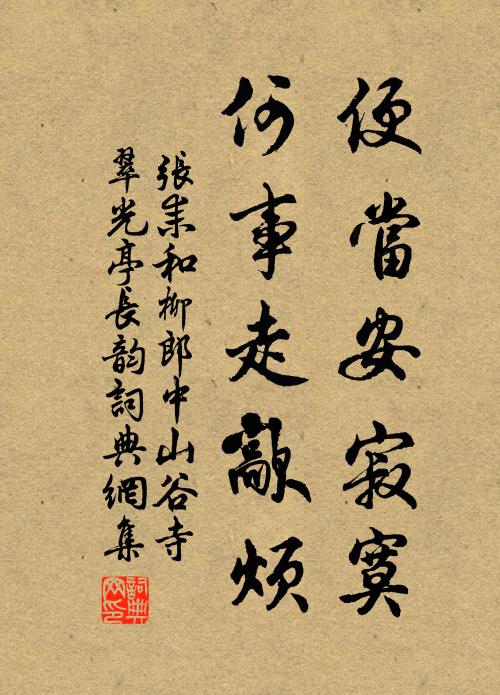 便當安寂寞
何事走歊煩
張耒和柳郎中山谷寺
翠光亭長韵詞典網集
詞典网印